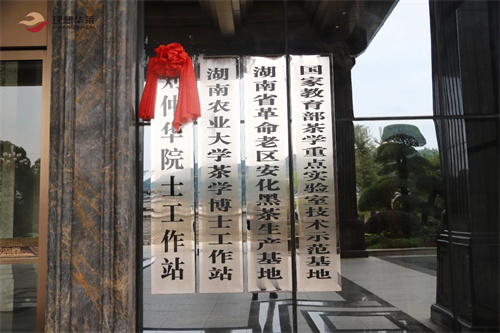 理想华莱
刘仲华院士工作站
湖南农业大学茶学博士工作站
湖南省革命老区安化黑茶生产基地
国家教育部茶学重点实验室技术示范基地